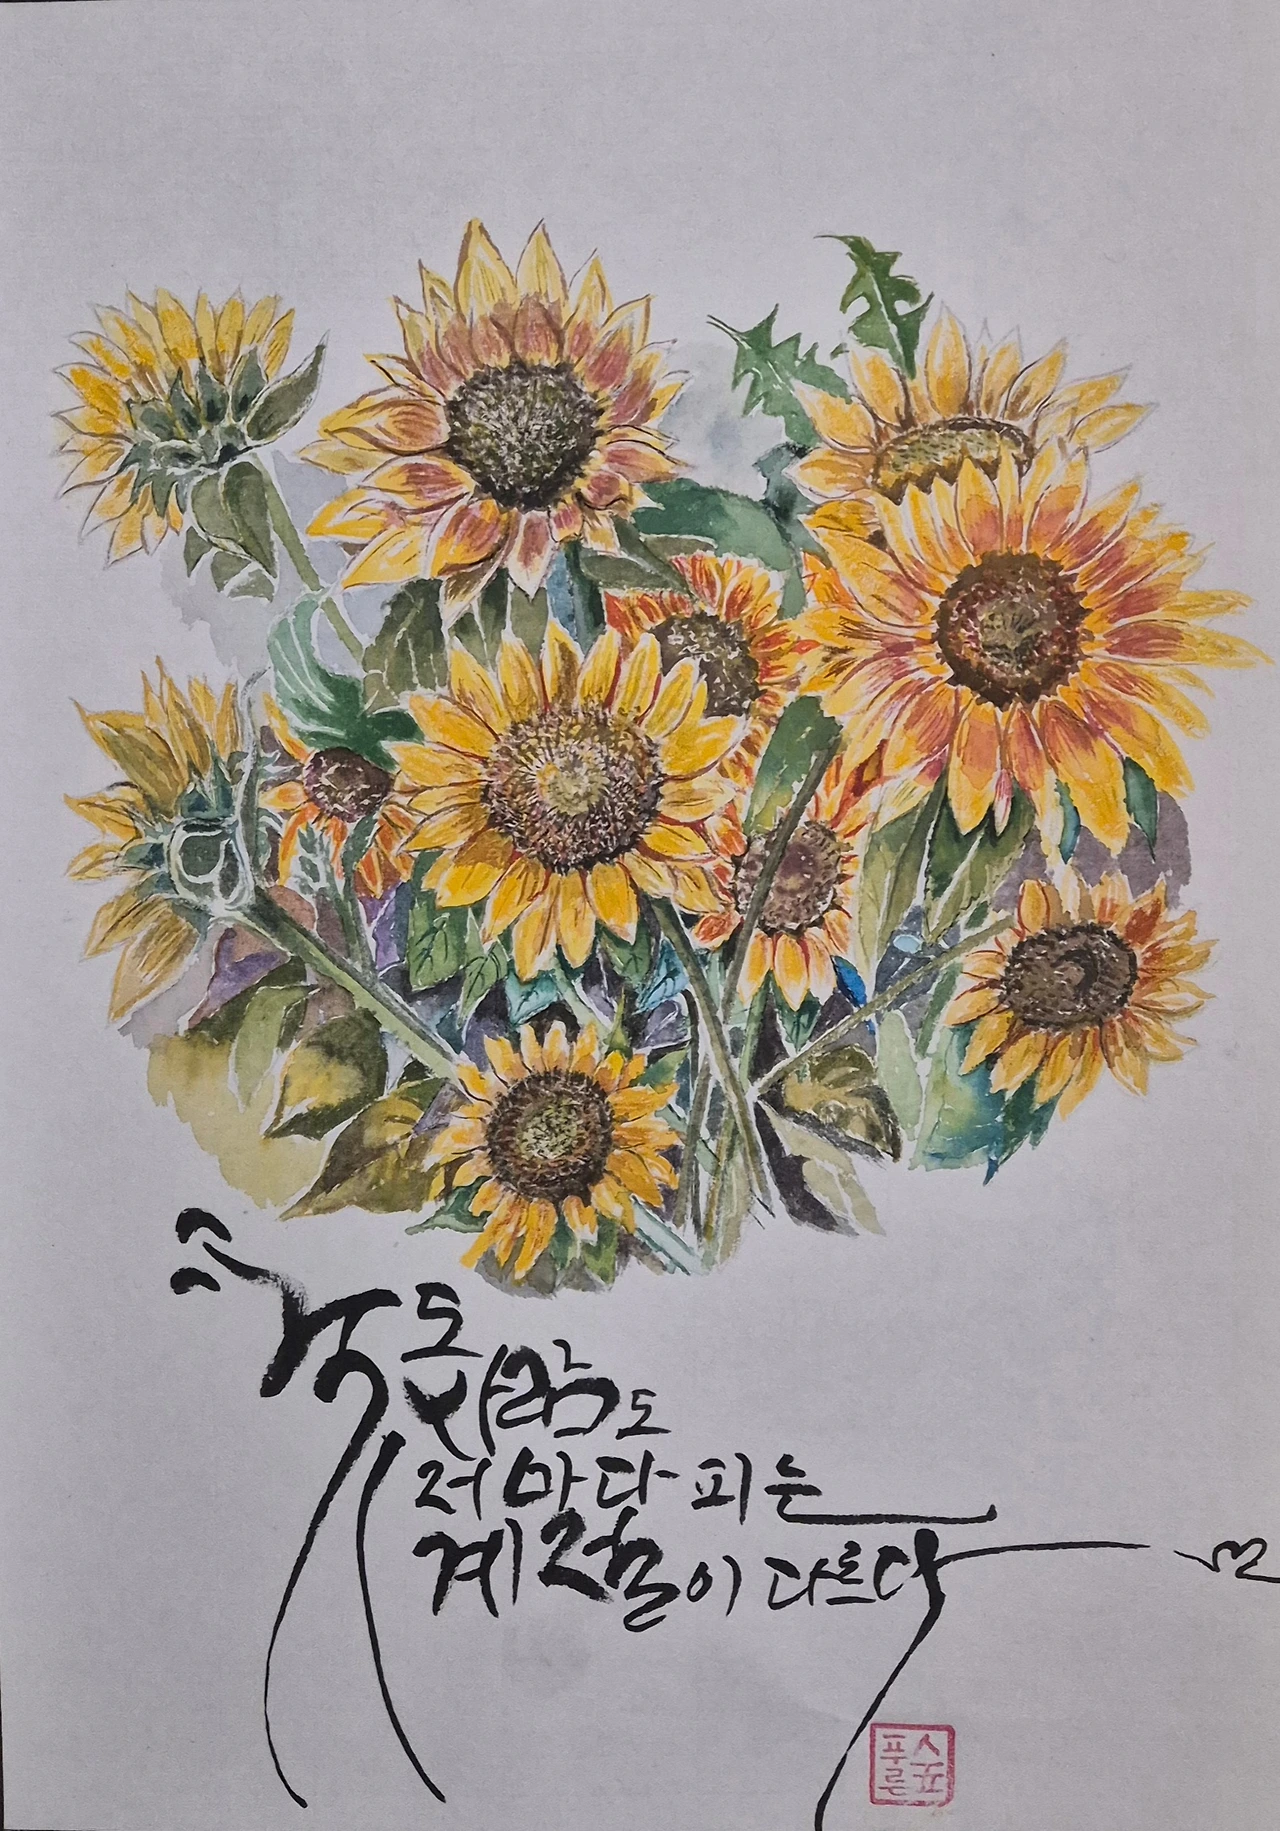 꽃도
사람도
저마다 피는
계절이 다르다
푸른숲